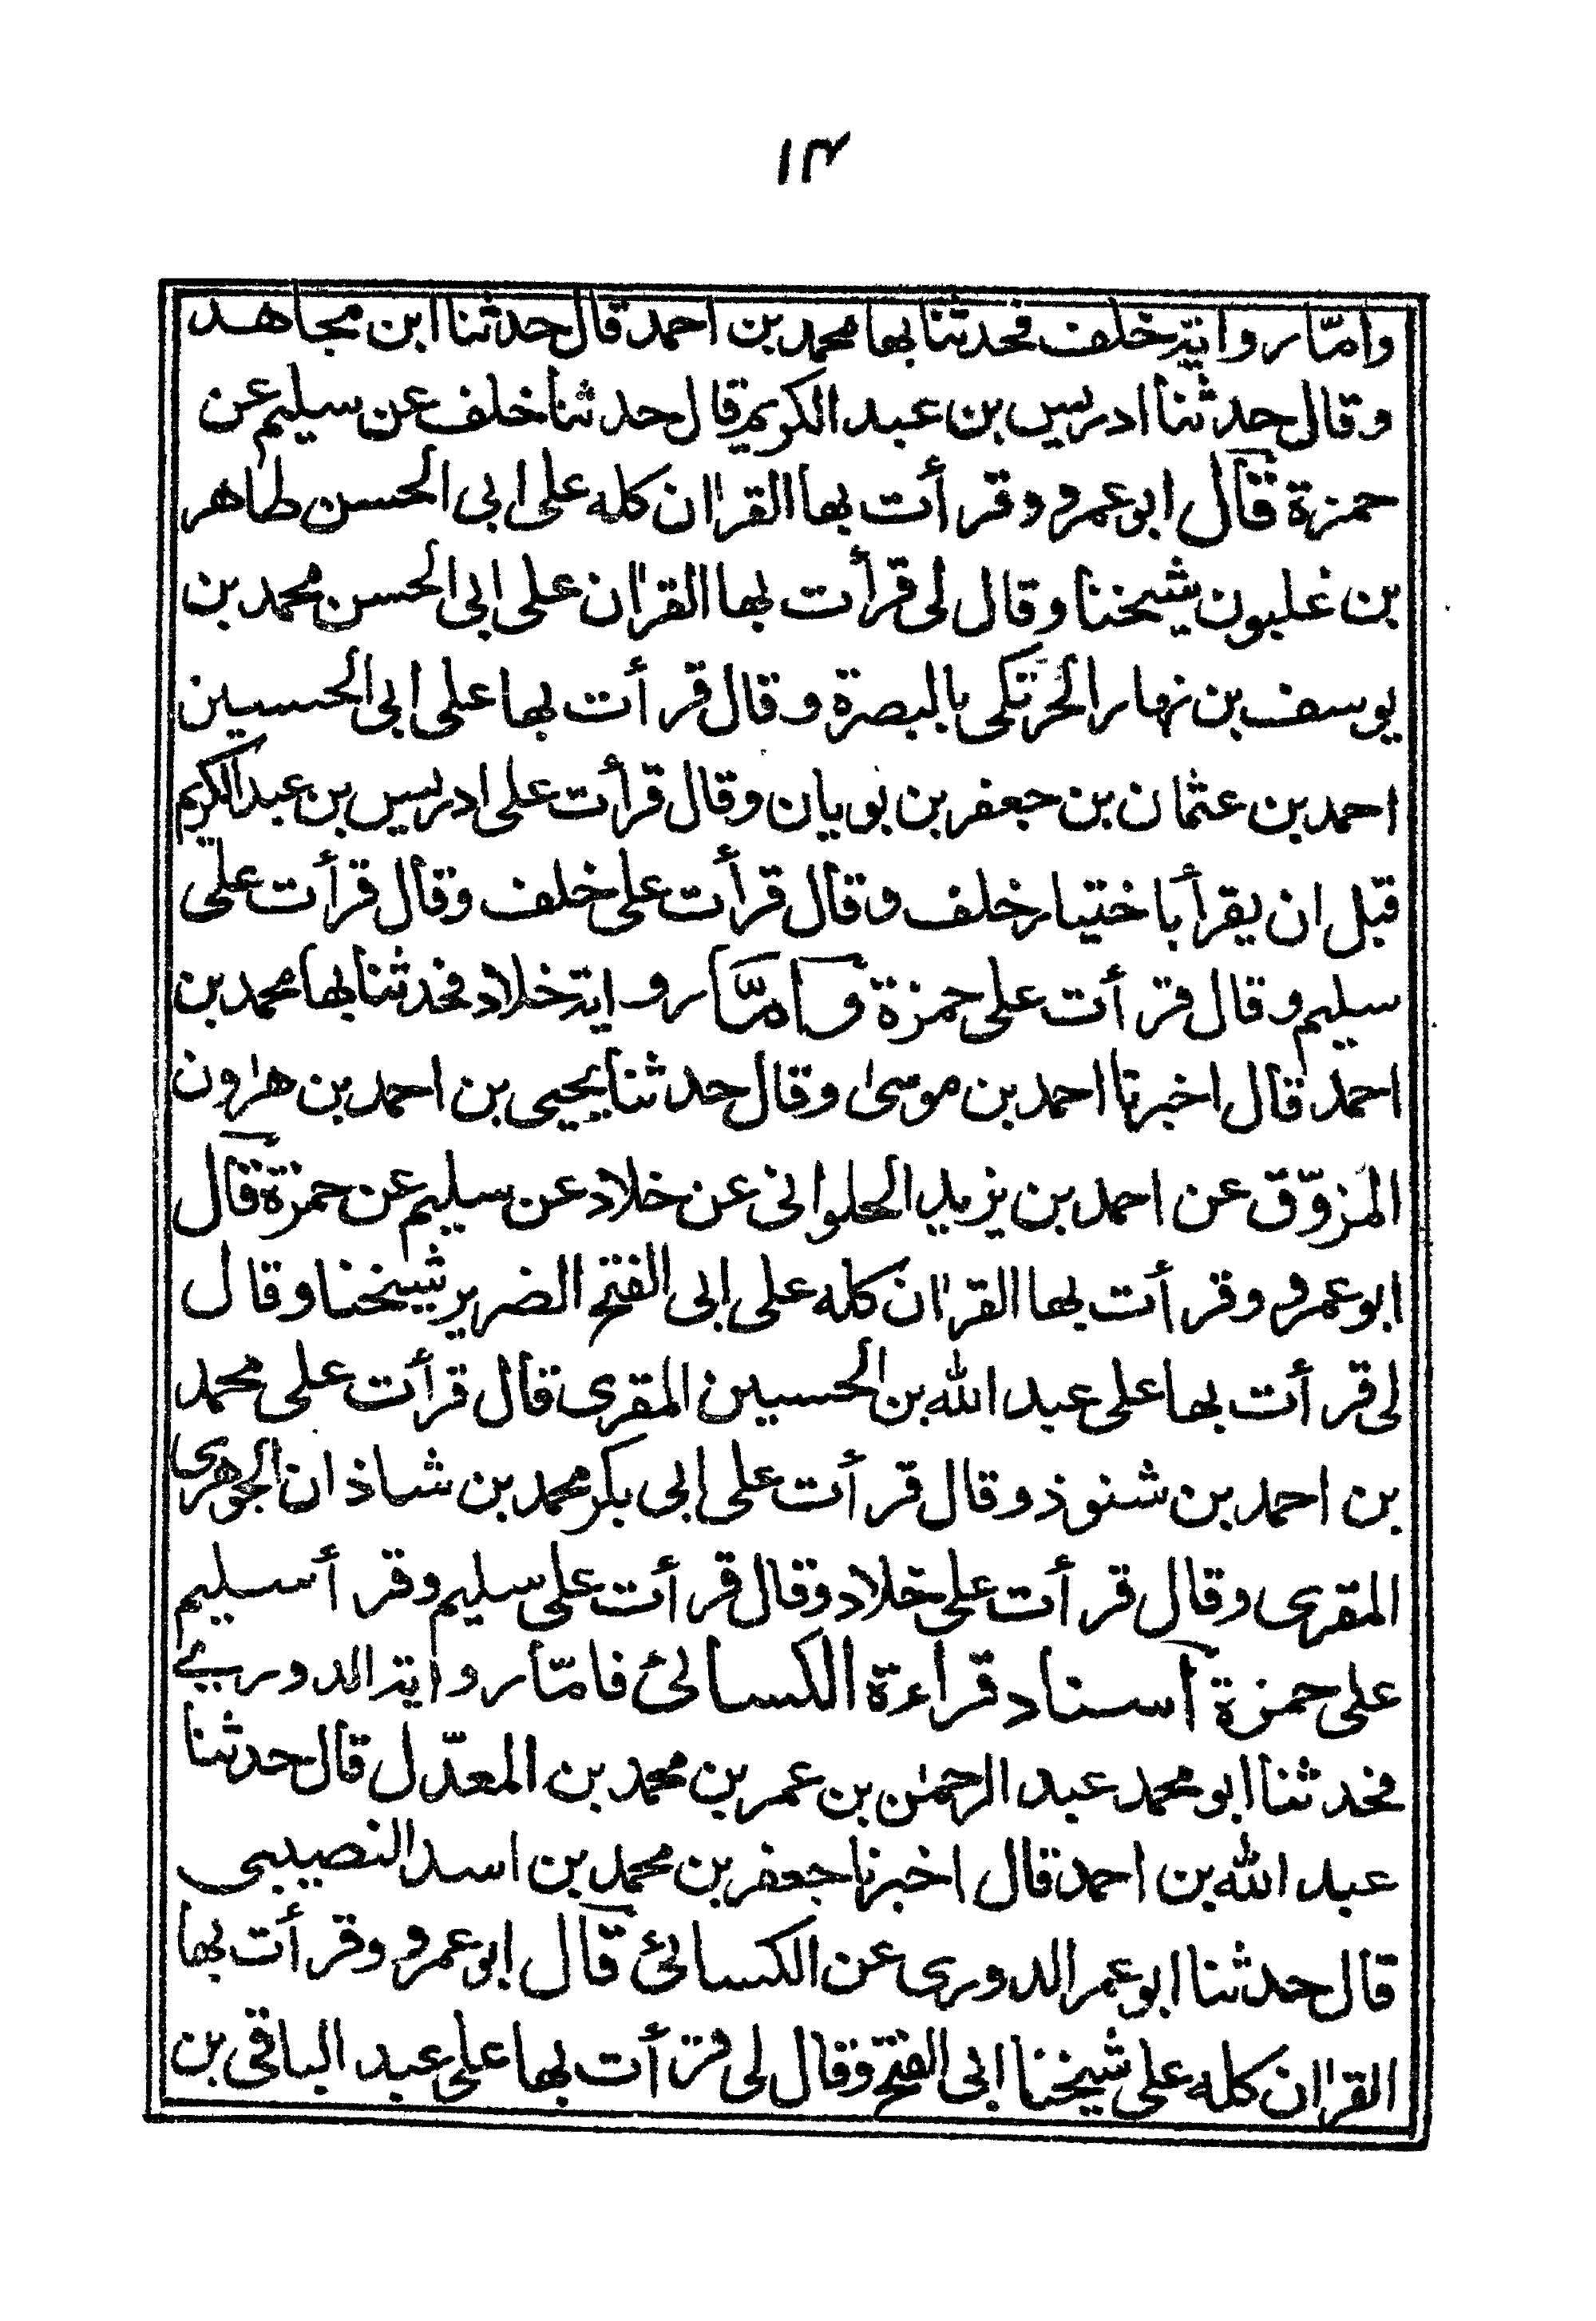 ١٣
وامّا رواية خلف فحدثنا بها محمد بن احمد قال حدثنا ابن مجاهد
وقال حدثنا ادريس بن عبد الكريم قال حدثنا خلف عن سليم عن
حمزة قال ابو عمرو وقرأت بها القرأن كله على ابى الحسن طاهر
بن غلبون شيخنا وقال لى قرأت بها القرأن على ابى الحسن محمد بن
يوسف بن نهار الحرتكى بالبصرة وقال قرأت بها على ابى الحسين
احمد بن عثمان بن جعفر بن بويان وقال قرأت على ادريس بن عبد الكريم
قبل ان يقرأ باختيار خلف وقال قرأت على خلف وقال قرأت على
سليم وقال قرأت على حمزة وامّا رواية خلاد فحدثنا بها محمد بن
احمد قال اخبرنا احمد بن موسىٰ وقال حدثنا يحيى بن احمد بن هٰرون
المزوّق عن احمد بن يزيد الحلوانى عن خلاد عن سليم عن حمزة قال
ابو عمرو وقرأت بها القرأن كله على ابى الفتح الضرير شيخنا وقال
لى قرأت بها على عبد الله بن الحسين المقرى قال قرأت على محمد
بن احمد بن شنوذ وقال قرأت على ابى بكر محمد بن شاذان الجوهرى
المقرى وقال قرأت على خلاد وقال قرأت على سليم وقرأ سليم
على حمزة اسناد قراءة الكسائى فامّا رواية الدورى
فحدثنا ابو محمد عبد الرحمٰن بن عمر بن محمد بن المعدّل قال حدثنا
عبد الله بن احمد قال اخبرنا جعفر بن محمد بن اسد النصيبى
قال حدثنا ابو عمر الدورى عن الكسائى قال ابو عمرو وقرأت بها
القرأن كله على شيخنا ابى الفتح وقال لى قرأت بها على عبد الباقى بن